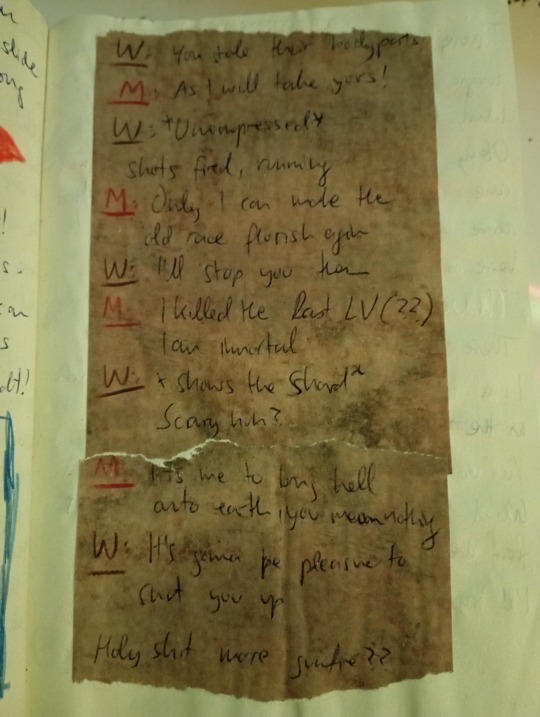 slide
W: You stole their bodyparts
M: As I will take yours!
W: *Unimpressed*
shots fired, running
M: Only I can make the
old race flurish again
W: I'll stop you then
M: I killed the last LV(??)
I am immortal
W: *shows the Shard*
Scary huh?
M: me to bring hell
onto earth, you mean nothing
W: It's gonna be pleasure to
shut you up
Holy shit more gunfire??